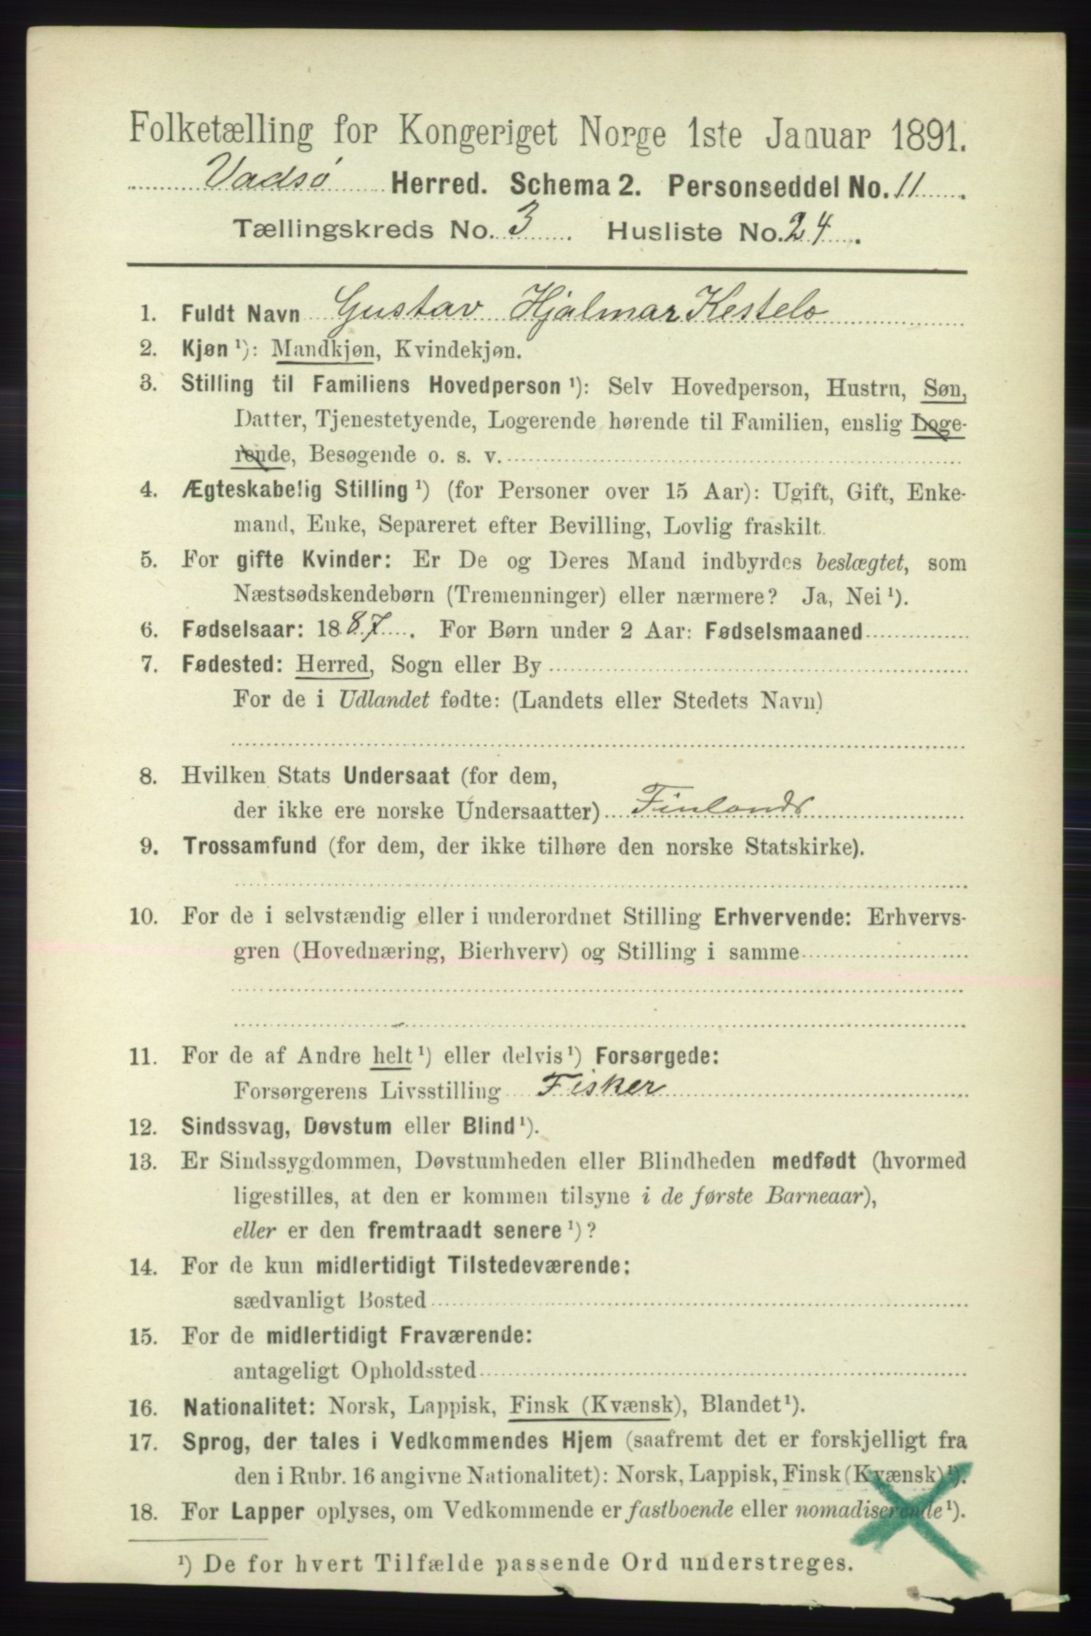 Folketælling for Kongeriget Norge 1ste Januar 1891.
Vadsø Herred. Schema 2. Personseddel No. 11.
Tællingskreds No. 3. Husliste No. 24.
1. Fuldt Navn Gustav Hjalmar Kestelo
2. Kjøn ¹): Mandkjøn, Kvindekjøn.
3. Stilling til Familiens Hovedperson ¹): Selv Hovedperson, Hustru, Søn,
Datter, Tjenestetyende, Logerende hørende til Familien, enslig Loge-
rende, Besøgende o. s. v.
4. Ægteskabelig Stilling ¹) (for Personer over 15 Aar): Ugift, Gift, Enke-
mand, Enke, Separeret efter Bevilling, Lovlig fraskilt.
5. For gifte Kvinder: Er De og Deres Mand indbyrdes beslægtet, som
Næstsødskendebørn (Tremenninger) eller nærmere? Ja, Nei ¹).
6. Fødselsaar: 1887. For Børn under 2 Aar: Fødselsmaaned
7. Fødested: Herred, Sogn eller By
For de i Udlandet fødte: (Landets eller Stedets Navn)
8. Hvilken Stats Undersaat (for dem,
der ikke ere norske Undersaatter) Finlands
9. Trossamfund (for dem, der ikke tilhøre den norske Statskirke).
10. For de i selvstændig eller i underordnet Stilling Erhvervende: Erhvervs-
gren (Hovednæring, Bierhverv) og Stilling i samme
11. For de af Andre helt ¹) eller delvis ¹) Forsørgede:
Forsørgerens Livsstilling Fisker
12. Sindssvag, Døvstum eller Blind ¹).
13. Er Sindssygdommen, Døvstumheden eller Blindheden medfødt (hvormed
ligestilles, at den er kommen tilsyne i de første Barneaar),
eller er den fremtraadt senere ¹)?
14. For de kun midlertidigt Tilstedeværende:
sædvanligt Bosted
15. For de midlertidigt Fraværende:
antageligt Opholdssted
16. Nationalitet: Norsk, Lappisk, Finsk (Kvænsk), Blandet ¹).
17. Sprog, der tales i Vedkommendes Hjem (saafremt det er forskjelligt fra
den i Rubr. 16 angivne Nationalitet): Norsk, Lappisk, Finsk (Kvænsk) ¹).
18. For Lapper oplyses, om Vedkommende er fastboende eller nomadiserende ¹).
¹) De for hvert Tilfælde passende Ord understreges.